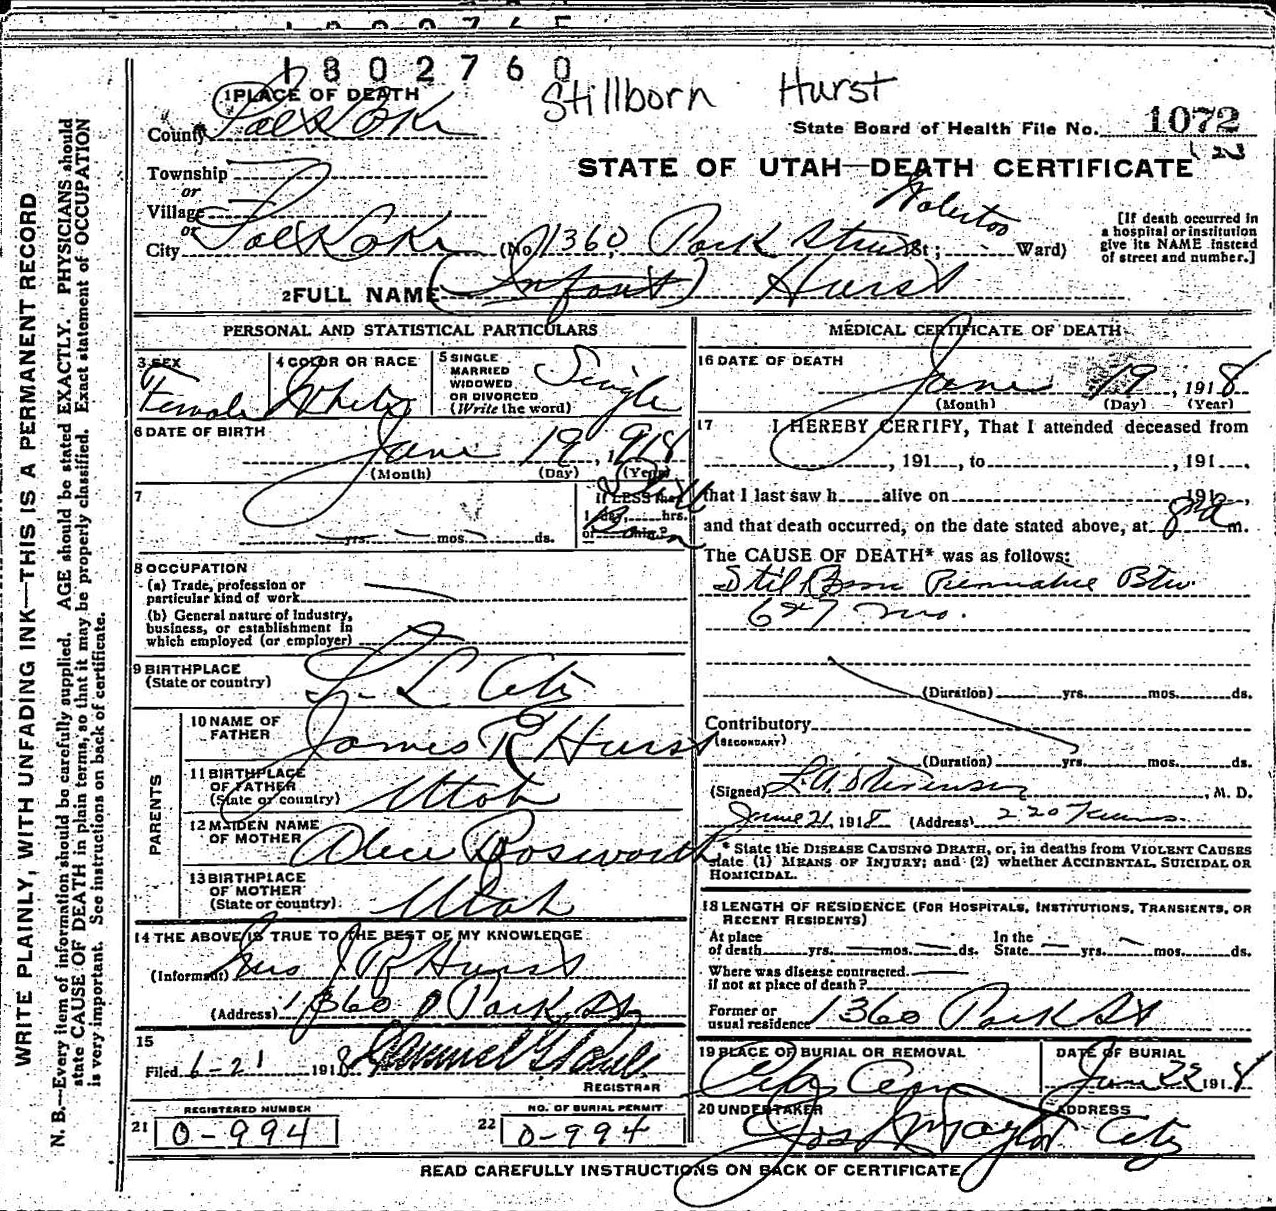 1802760
Stillborn Hurst
1 PLACE OF DEATH
County Salt Lake
State Board of Health File No. 1072
STATE OF UTAH—DEATH CERTIFICATE
Township
or
Village
or
City Salt Lake (No. 1360, Park Street St.; Ward)
[If death occurred in
a hospital or institution
give its NAME instead
of street and number.]
2 FULL NAME (Infant) Hurst
PERSONAL AND STATISTICAL PARTICULARS
3 SEX
Female
4 COLOR OR RACE
White
5 SINGLE
MARRIED
WIDOWED
OR DIVORCED
(Write the word)
Single
6 DATE OF BIRTH
June 19, 1918
(Month) (Day) (Year)
7
yrs. mos. ds.
If LESS than
1 day, hrs.
or min.?
Still
Born
8 OCCUPATION
(a) Trade, profession or
particular kind of work
(b) General nature of industry,
business, or establishment in
which employed (or employer)
9 BIRTHPLACE
(State or country)
S. L. City
PARENTS
10 NAME OF
FATHER
James R Hurst
11 BIRTHPLACE
OF FATHER
(State or country)
Utah
12 MAIDEN NAME
OF MOTHER
Alice Bosworth
13 BIRTHPLACE
OF MOTHER
(State or country)
Utah
14 THE ABOVE IS TRUE TO THE BEST OF MY KNOWLEDGE
(Informant) Mrs J R Hurst
(Address) 1360 Park St
15
Filed 6-21 1918
REGISTRAR
REGISTERED NUMBER
21 0-994
NO. OF BURIAL PERMIT
22 0-994
MEDICAL CERTIFICATE OF DEATH
16 DATE OF DEATH
June 19, 1918
(Month) (Day) (Year)
17 I HEREBY CERTIFY, That I attended deceased from
, 191 , to , 191 ,
that I last saw h alive on 191 ,
and that death occurred, on the date stated above, at m.
The CAUSE OF DEATH* was as follows:
Stil Born
6 & 7 mo.
(Duration) yrs. mos. ds.
Contributory
(SECONDARY)
(Duration) yrs. mos. ds.
(Signed) L. A. Stevenson, M. D.
June 21, 1918 (Address) 220
* State the DISEASE CAUSING DEATH, or, in deaths from VIOLENT CAUSES
state (1) MEANS OF INJURY; and (2) whether ACCIDENTAL, SUICIDAL OR
HOMICIDAL.
18 LENGTH OF RESIDENCE (FOR HOSPITALS, INSTITUTIONS, TRANSIENTS, OR
RECENT RESIDENTS)
At place
of death yrs. mos. ds.
In the
State yrs. mos. ds.
Where was disease contracted.
if not at place of death?
Former or
usual residence 1360 Park St
19 PLACE OF BURIAL OR REMOVAL
City Cem
DATE OF BURIAL
June 22 1918
20 UNDERTAKER
Jos Wm Taylor
ADDRESS
City
READ CAREFULLY INSTRUCTIONS ON BACK OF CERTIFICATE
WRITE PLAINLY, WITH UNFADING INK—THIS IS A PERMANENT RECORD
N. B.—Every item of information should be carefully supplied. AGE should be stated EXACTLY. PHYSICIANS should
state CAUSE OF DEATH in plain terms, so that it may be properly classified. Exact statement of OCCUPATION
is very important. See instructions on back of certificate.